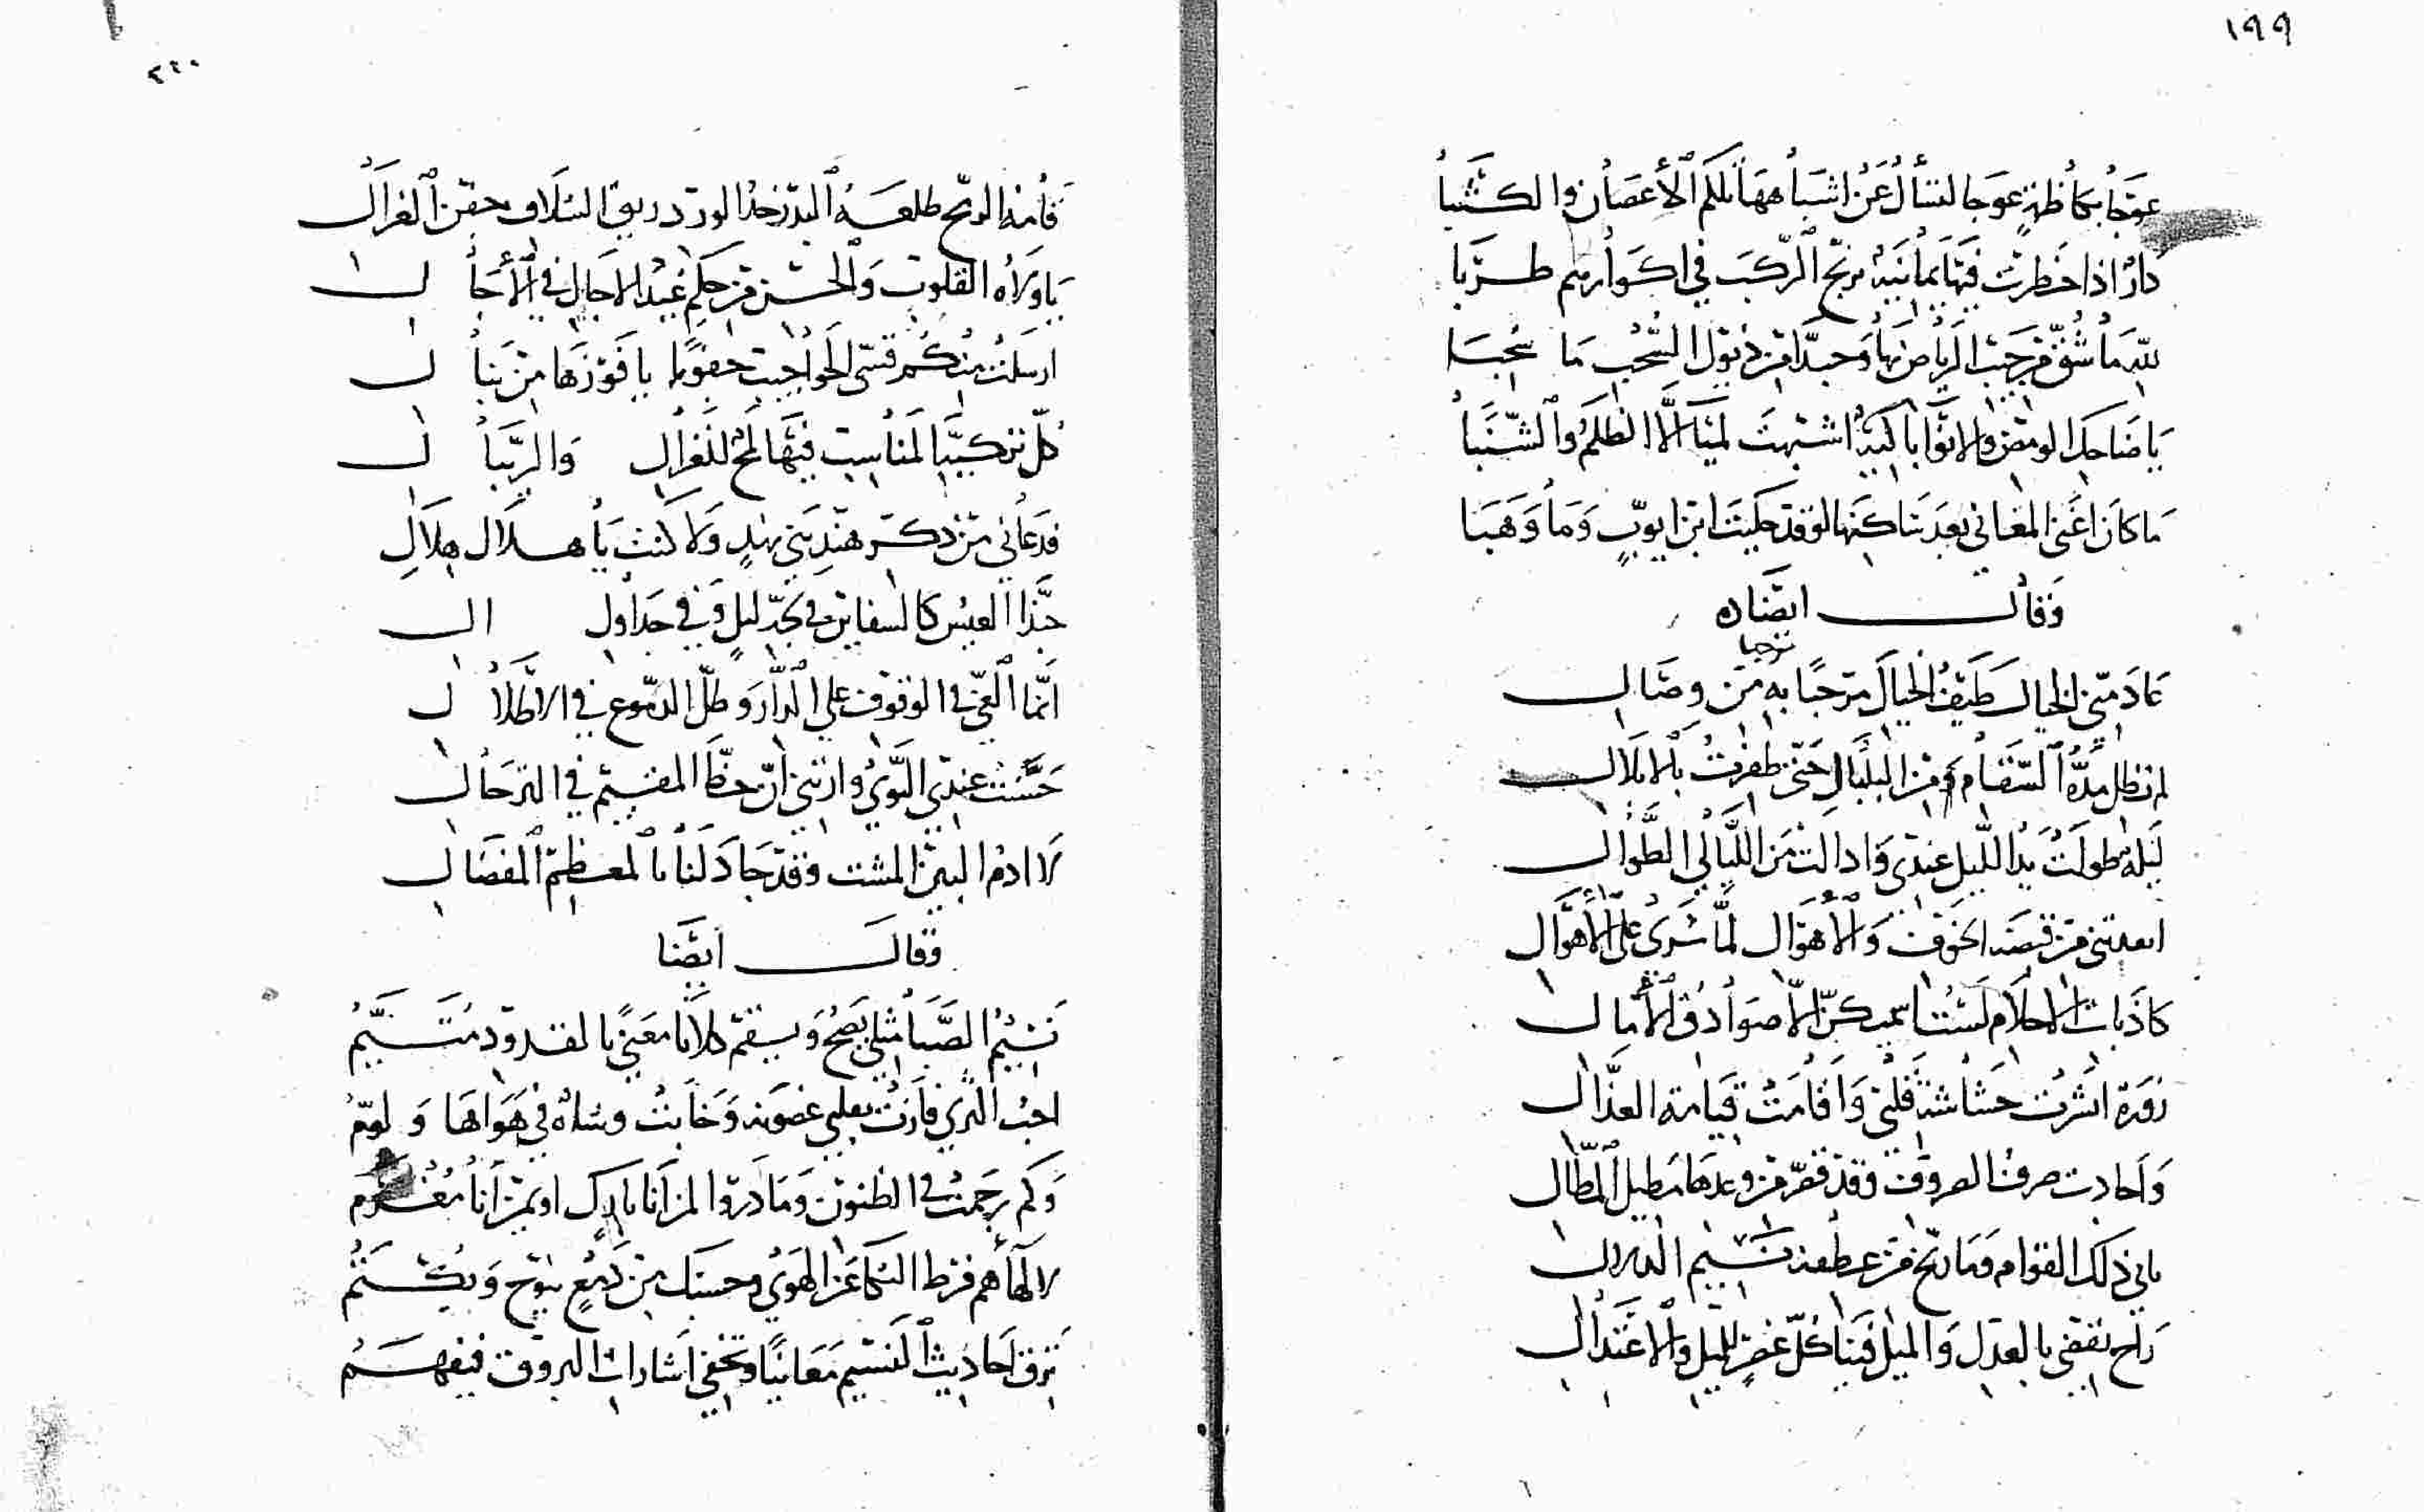 ١٩٩
عوجا بكاظمة عوجا لنسأل عن اشباهها تلكم الأغصان والكثبا
دار اذا خطرت فيها يمانية يرنح الركب في اكوارهم طربا
لله ما شق من جيب الرياض بها وحبذا من ذيول السحب ما سحبا
يا ضاحك الومض والانواء باكية اشبهت لمياء لا الظلم والشنبا
ما كان اغنى المغاني بعد ساكنها لو قد حكيت ابن ايوب وما وهبا
وقال ايضا
عادمني الخيال طيف الخيال مرحبا به من وصال
مرحبا
لم تطل مدة السقام ومن البلبال حتى ظفرت بالابلال
ليلة طولت يد الليل عندي وادالت من الليالي الطوال
ابعدتني من قبضة الخوف والأهوال لما سرى على الأهوال
كاذبات الاحلام لست اسميكن الا صوادق الآمال
زورة انشرت حشاشة قلبي واقامت قيامة العذال
واحاديث صرف الصروف وقد قصر من وعدها مطيل المطال
بابي ذلك القوام وما رنح من عطفه نسيم الدلال
راح يقضي بالعدل والميل فينا كل غصن للميل والاعتدال
٢٠٠
قامة الرمح طلعة البدر خد الورد ريق السلاف جفن الغزال
يا ولاة القلوب والحسن من حكم عبد الاجال في الآجال
ارسلت منكم قسي الحواجب حقوبا يا فوزها من نبال
كل تركيبها لمناسب فيها لمح للغزال والربال
فدعاني من ذكر هند بني نهد ولا كنت يا هلال هلال
حبذا العيس كالسفائن في بحر ليل وفي جداول ال
انما الغي في الوقوف على الدار وطل الدموع في الاطلال
حسنت عندي النوى وارتني ان حظ المقيم في الترحال
لا اذم البين المشت وقد جاد لنا بالمعظم المفضال
وقال ايضا
نسيم الصبا مثلي يصح ويسقم كلانا معنى بالقدود متيم
احب الذي فازت بقلبي غصونه وخابت وشاة في هواها ولوم
وكم رجمت في الظنون وما دروا لمن انا باك او بمن انا مغرم
لالهاهم فرط البكا عن الهوى وحسبك من دمع يبوح ويكتم
ترق احاديث النسيم معانيا وتخفي اشارات البروق فيفهم